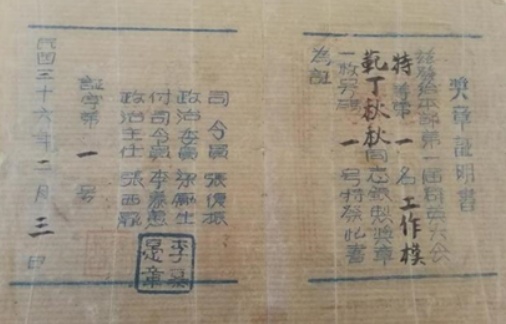 獎章証明書
茲發給本部第一屆英大会
特等第一名工作模
範丁秋秋同志銀製獎章
一枚號碼一号特發此書
為証
司令員張復振
政治委員
付司令員李慕愚
政治主任張西
証字第一号
民国三十六年二月三日
李慕愚章